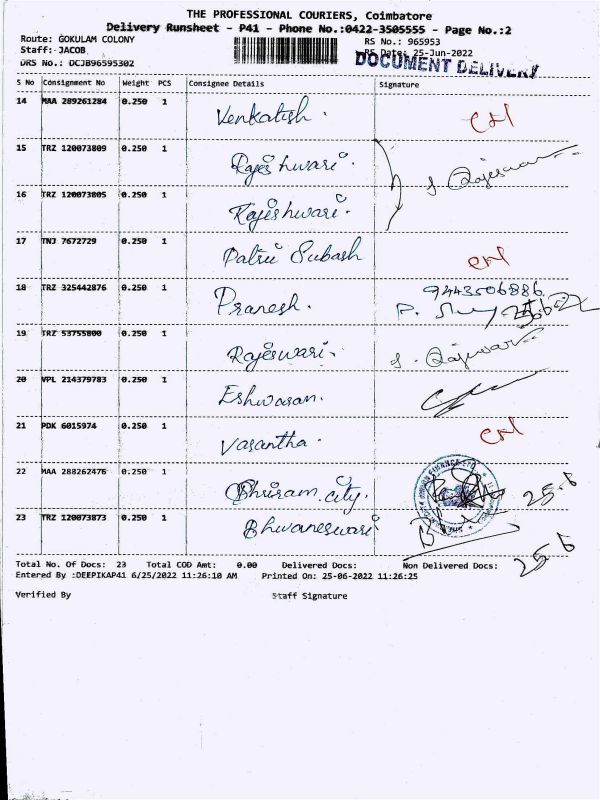 THE PROFESSIONAL COURIERS, Coimbatore
Delivery Runsheet - P41 - Phone No.:0422-3505555 - Page No.:2
Route: GOKULAM COLONY RS No.: 965953
Staff: JACOB RS Date: 25-Jun-2022
DRS No.: DCJB96595302 DOCUMENT DELIVERY
S No Consignment No Weight PCS Consignee Details Signature
14 MAA 289261284 0.250 1 Venkatish.
15 TRZ 120073809 0.250 1 Rajeshwari.
16 TRZ 120073805 0.250 1 Rajeshwari.
17 TNJ 7672729 0.250 1 Patrii Subash
18 TRZ 325442876 0.250 1 Pranesh. 9443506886
19 TRZ 53755800 0.250 1 Rajeswari.
20 VPL 214379783 0.250 1 Eshwaran.
21 PDK 6015974 0.250 1 Vasantha.
22 MAA 288262476 0.250 1 Shriram city. 25-6
23 TRZ 120073873 0.250 1 Bhwaneswari 25-6
Total No. Of Docs: 23 Total COD Amt: 0.00 Delivered Docs: Non Delivered Docs:
Entered By :DEEPIKAP41 6/25/2022 11:26:10 AM Printed On: 25-06-2022 11:26:25
Verified By Staff Signature